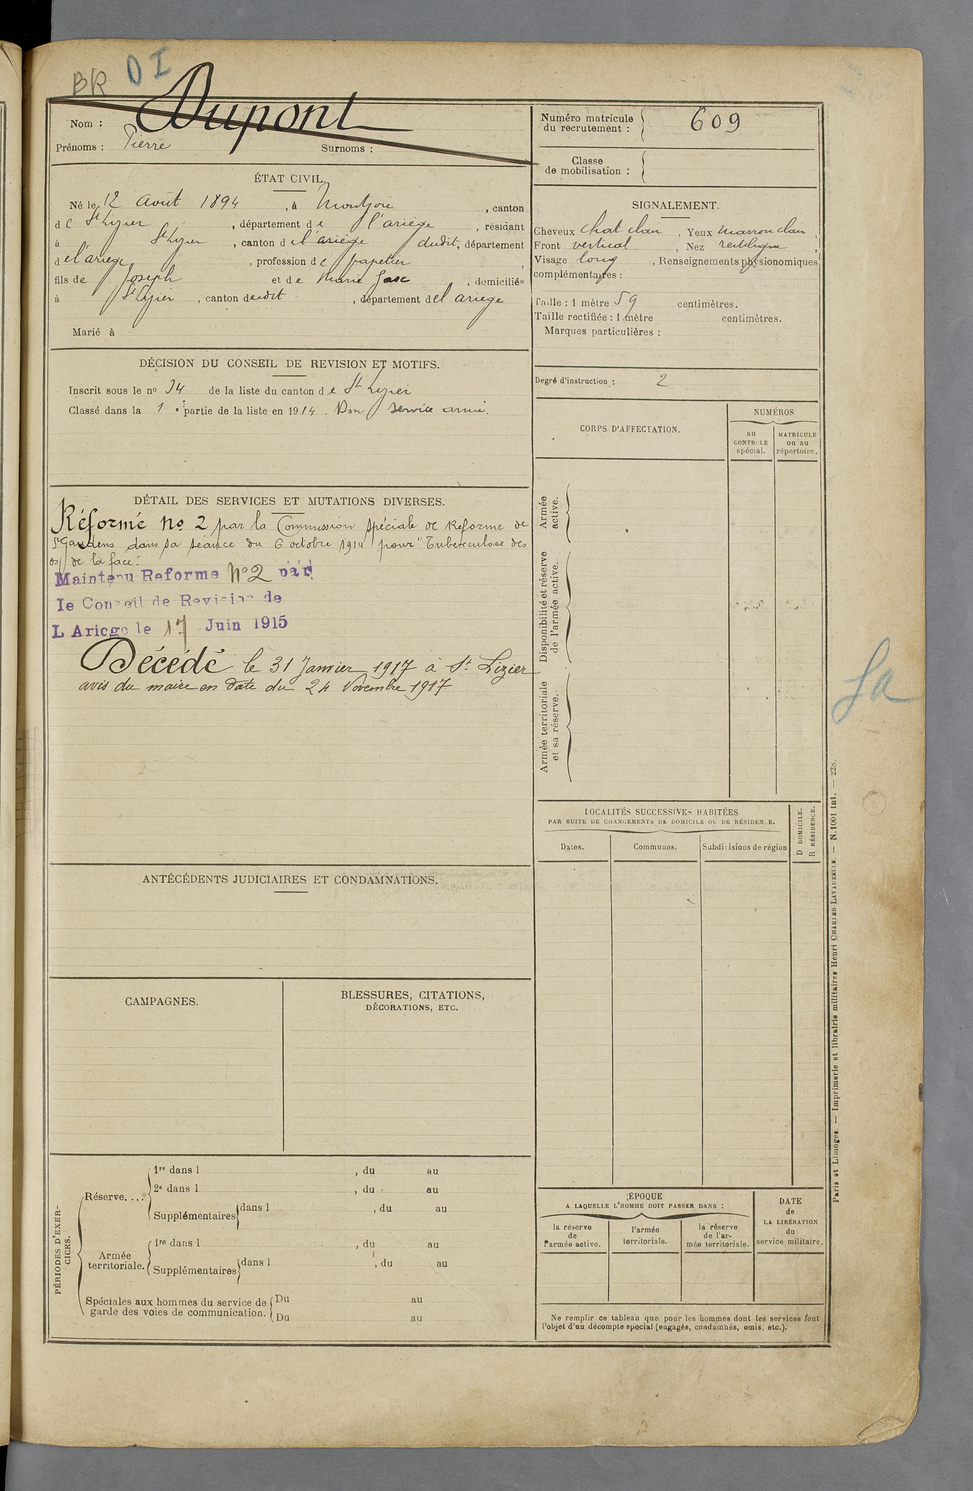 BR DI
Nom : Dupont
Prénoms : Pierre Surnoms :
Numéro matricule du recrutement : 609
Classe de mobilisation :
ÉTAT CIVIL.
Né le 12 Août 1894, à Montjoie, canton
de St Lizier, département de l'ariège, résidant
à St Lizier, canton de l'ariège dudit, département
de l'ariège, profession de papetier,
fils de Joseph et de Marie, domiciliés
à St Lizier, canton dudit, département de l'ariège
Marié à
SIGNALEMENT.
Cheveux chat clair, Yeux marron clair,
Front vertical, Nez rectiligne,
Visage long, Renseignements physionomiques
complémentaires :
Taille : 1 mètre 59 centimètres.
Taille rectifiée : 1 mètre centimètres.
Marques particulières :
Degré d'instruction : 2
DÉCISION DU CONSEIL DE REVISION ET MOTIFS.
Inscrit sous le no 34 de la liste du canton de St Lizier
Classé dans la 1e partie de la liste en 1914. Bon service armé.
CORPS D'AFFECTATION.
NUMÉROS
au CONTROLE spécial.
MATRICULE ou au répertoire.
Armée active.
Disponibilité et réserve de l'armée active.
Armée territoriale et sa réserve.
DÉTAIL DES SERVICES ET MUTATIONS DIVERSES.
Réformé no 2 par la Commission spéciale de Réforme de
St Gaudens dans sa séance du 6 octobre 1914 pour "Tuberculose des
os de la face."
Maintenu Reforme no 2 par
le Conseil de Revision de
L Ariege le 17 Juin 1915
Décédé le 31 Janvier 1917 à St Lizier
avis du maire en date du 24 Novembre 1917
Sa
LOCALITÉS SUCCESSIVES HABITÉES
PAR SUITE DE CHANGEMENTS DE DOMICILE OU DE RÉSIDENCE.
Dates. Communes. Subdivisions de région
D DOMICILE.
R RÉSIDENCE.
ANTÉCÉDENTS JUDICIAIRES ET CONDAMNATIONS.
CAMPAGNES.
BLESSURES, CITATIONS,
DÉCORATIONS, ETC.
PÉRIODES D'EXERCICES.
Réserve. ...
1re dans l , du au
2e dans l , du au
Supplémentaires dans l , du au
Armée territoriale.
1re dans l , du au
Supplémentaires dans l , du au
Spéciales aux hommes du service de garde des voies de communication.
Du au
Du au
ÉPOQUE
A LAQUELLE L'HOMME DOIT PASSER DANS :
la réserve de l'armée active.
l'armée territoriale.
la réserve de l'armée territoriale.
DATE de LA LIBÉRATION du service militaire.
Ne remplir ce tableau que pour les hommes dont les services font
l'objet d'un décompte spécial (engagés, condamnés, omis, etc.).
Paris et Limoges. — Imprimerie et librairie militaires Henri CHARLES-LAVAUZELLE. — N. 1001 Int. — 228.